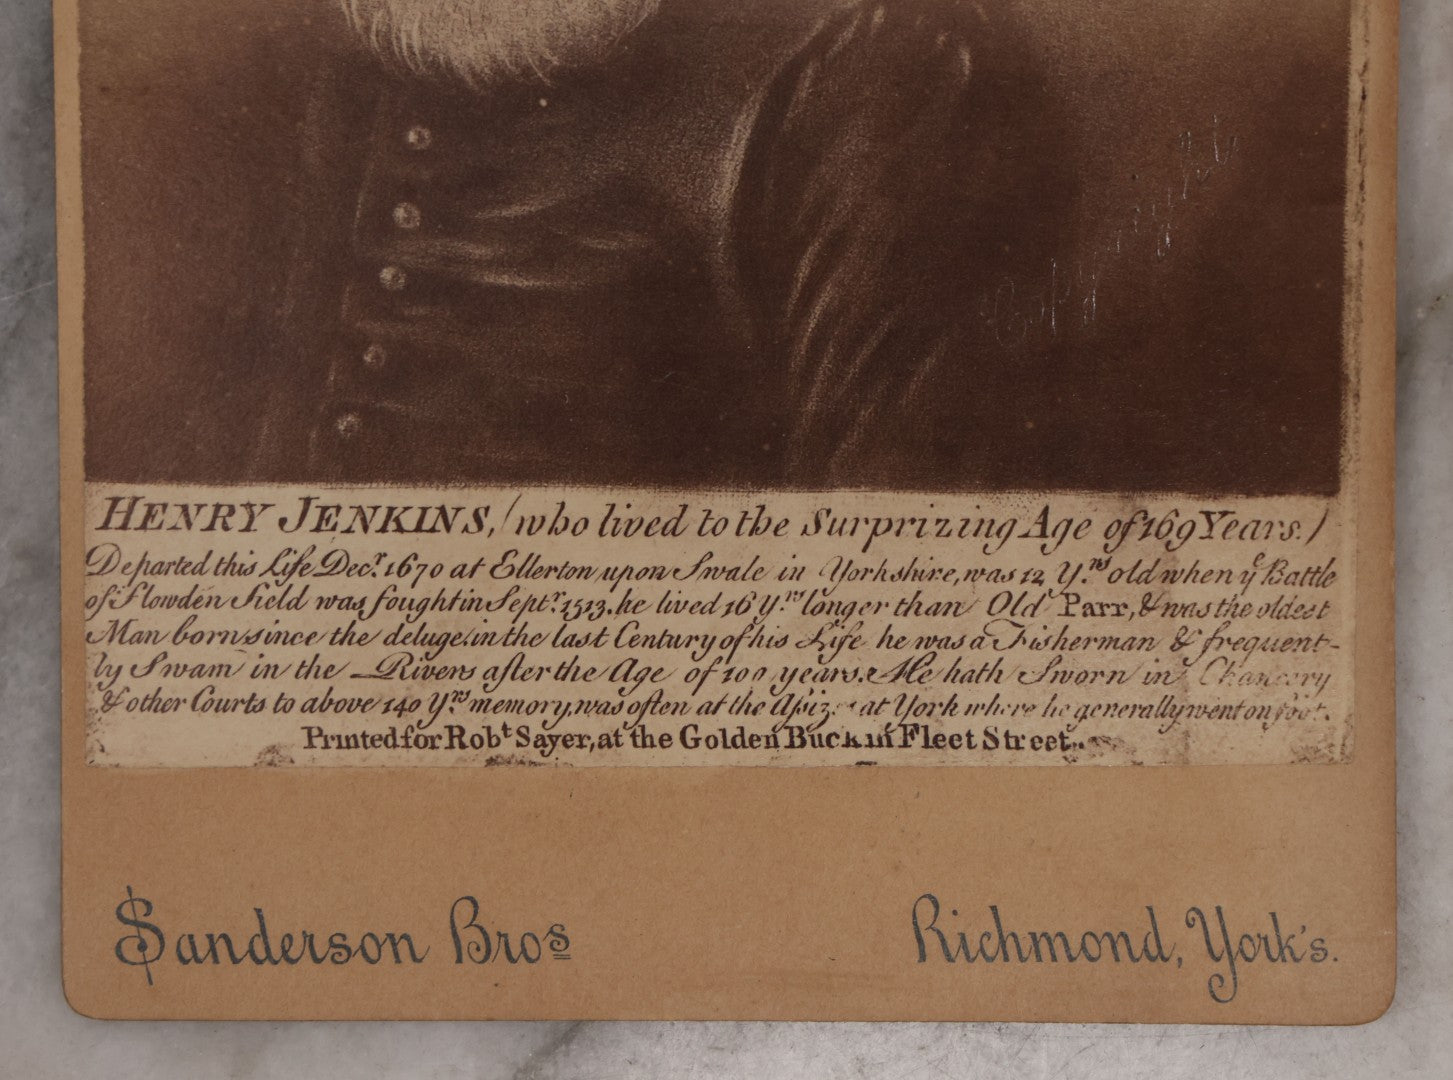 Copyright
HENRY JENKINS, (who lived to the Surprizing Age of 169 Years.)
Departed this Life Decr. 1670 at Ellerton upon Swale in Yorkshire, was 12 Yrs old when ye Battle
of Flowden Field was fought in Septr. 1513. he lived 16 Yrs longer than Old Parr, & was the oldest
Man born since the deluge. in the last Century of his Life he was a Fisherman & frequent-
ly Swam in the Rivers after the Age of 100 years. He hath Sworn in Chancery
& other Courts to above 140 Yrs memory, was often at the Assizes at York where he generally went on foot.
Printed for Robt Sayer, at the Golden Buck in Fleet Street.
Sanderson Bros
Richmond, York's.